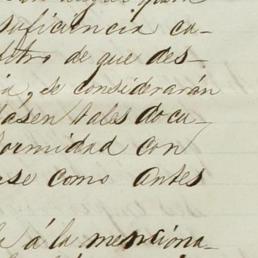 suficiencia ca-
de que des-
, se considerarán
tales docu-
ormidad con
se como antes
á la menciona-